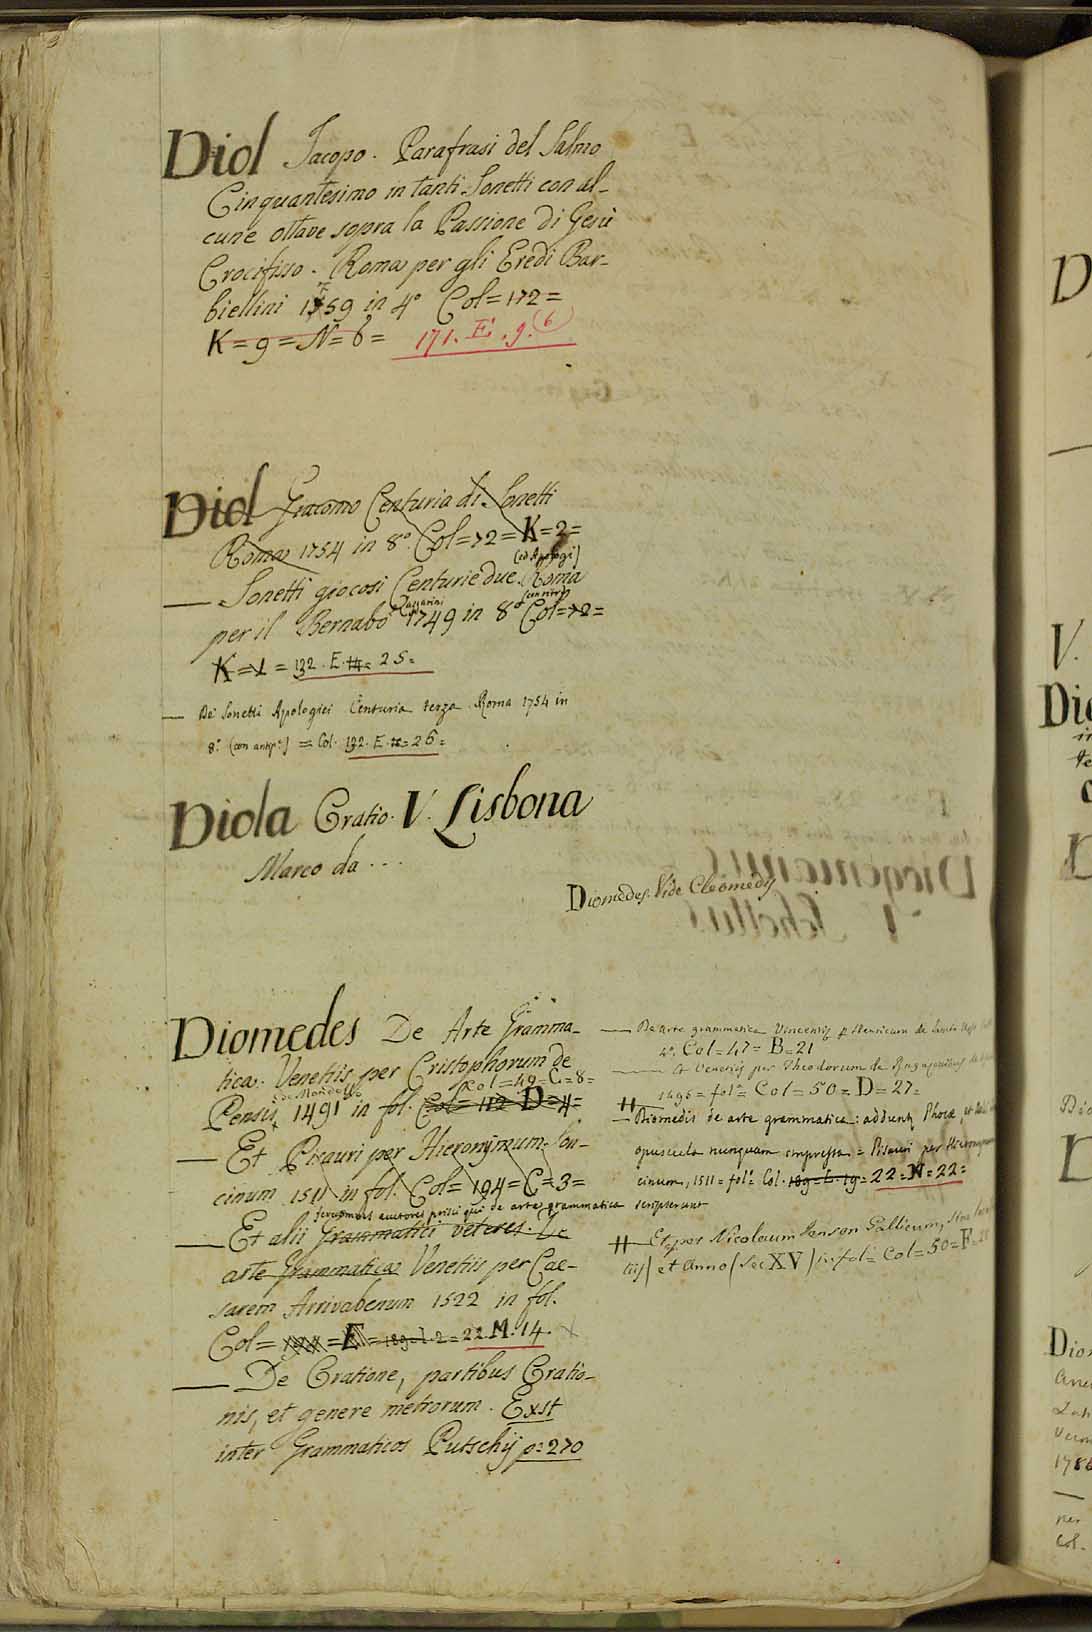 Diol Jacopo. Parafrasi del Salmo
Cinquantesimo in tanti Sonetti con al-
cune ottave sopra la Passione di Gesù
Crocifisso. Roma per gli Eredi Bar-
biellini 1759 in 4º Col=172=
K=9=N=6= 171. E. 9. (6)
Diol Giacomo Centuria di Sonetti
Roma 1754 in 8º Col=72=K=2=
(ed Apologi)
— Sonetti giocosi Centurie due. Roma
per il Bernabò 1749 in 8º Col=72=
K=1= 132. E. 25=
— De' Sonetti Apologici Centuria terza. Roma 1754 in
8º (con antip.) = Col. 132. E. 26=
Diola Oratio. V. Lisbona
Marco da...
Diomedes. Vide Cleomedes
Diomedes De Arte Gramma-
tica. Venetiis per Cristophorum de
Col=49=C=8=
Pensis 1491 in fol. Col=112 D=4=
— Et Pisauri per Hieronymum Son-
cinum 1511 in fol. Col=194=C=3=
auctores prisci qui de arte grammatica scripserunt
— Et alii Grammatici veteres. De
arte Grammatica Venetiis per Cae-
sarem Arrivabenum 1522 in fol.
Col= 22. M. 14.
— De Oratione, partibus Oratio-
nis, et genere metrorum. Exst
inter Grammaticos Putschij p=270
— De arte grammatica Vincentiae p Henricum de Sancto
4º. Col=47=B=21
— Et Venetiis per Theodorum de Ragazonibus
1495= folº= Col=50=D=27=
— Diomedis de arte grammatica: addunt Phocae, et
opuscula nunquam impressa = Pisauri per Hieronymum
cinum, 1511= folº Col. 189=L.19= 22=M=22=
— Et per Nicolaum Jenson Gallicum, sine
et Anno (Sec XV) in folº Col=50=F=